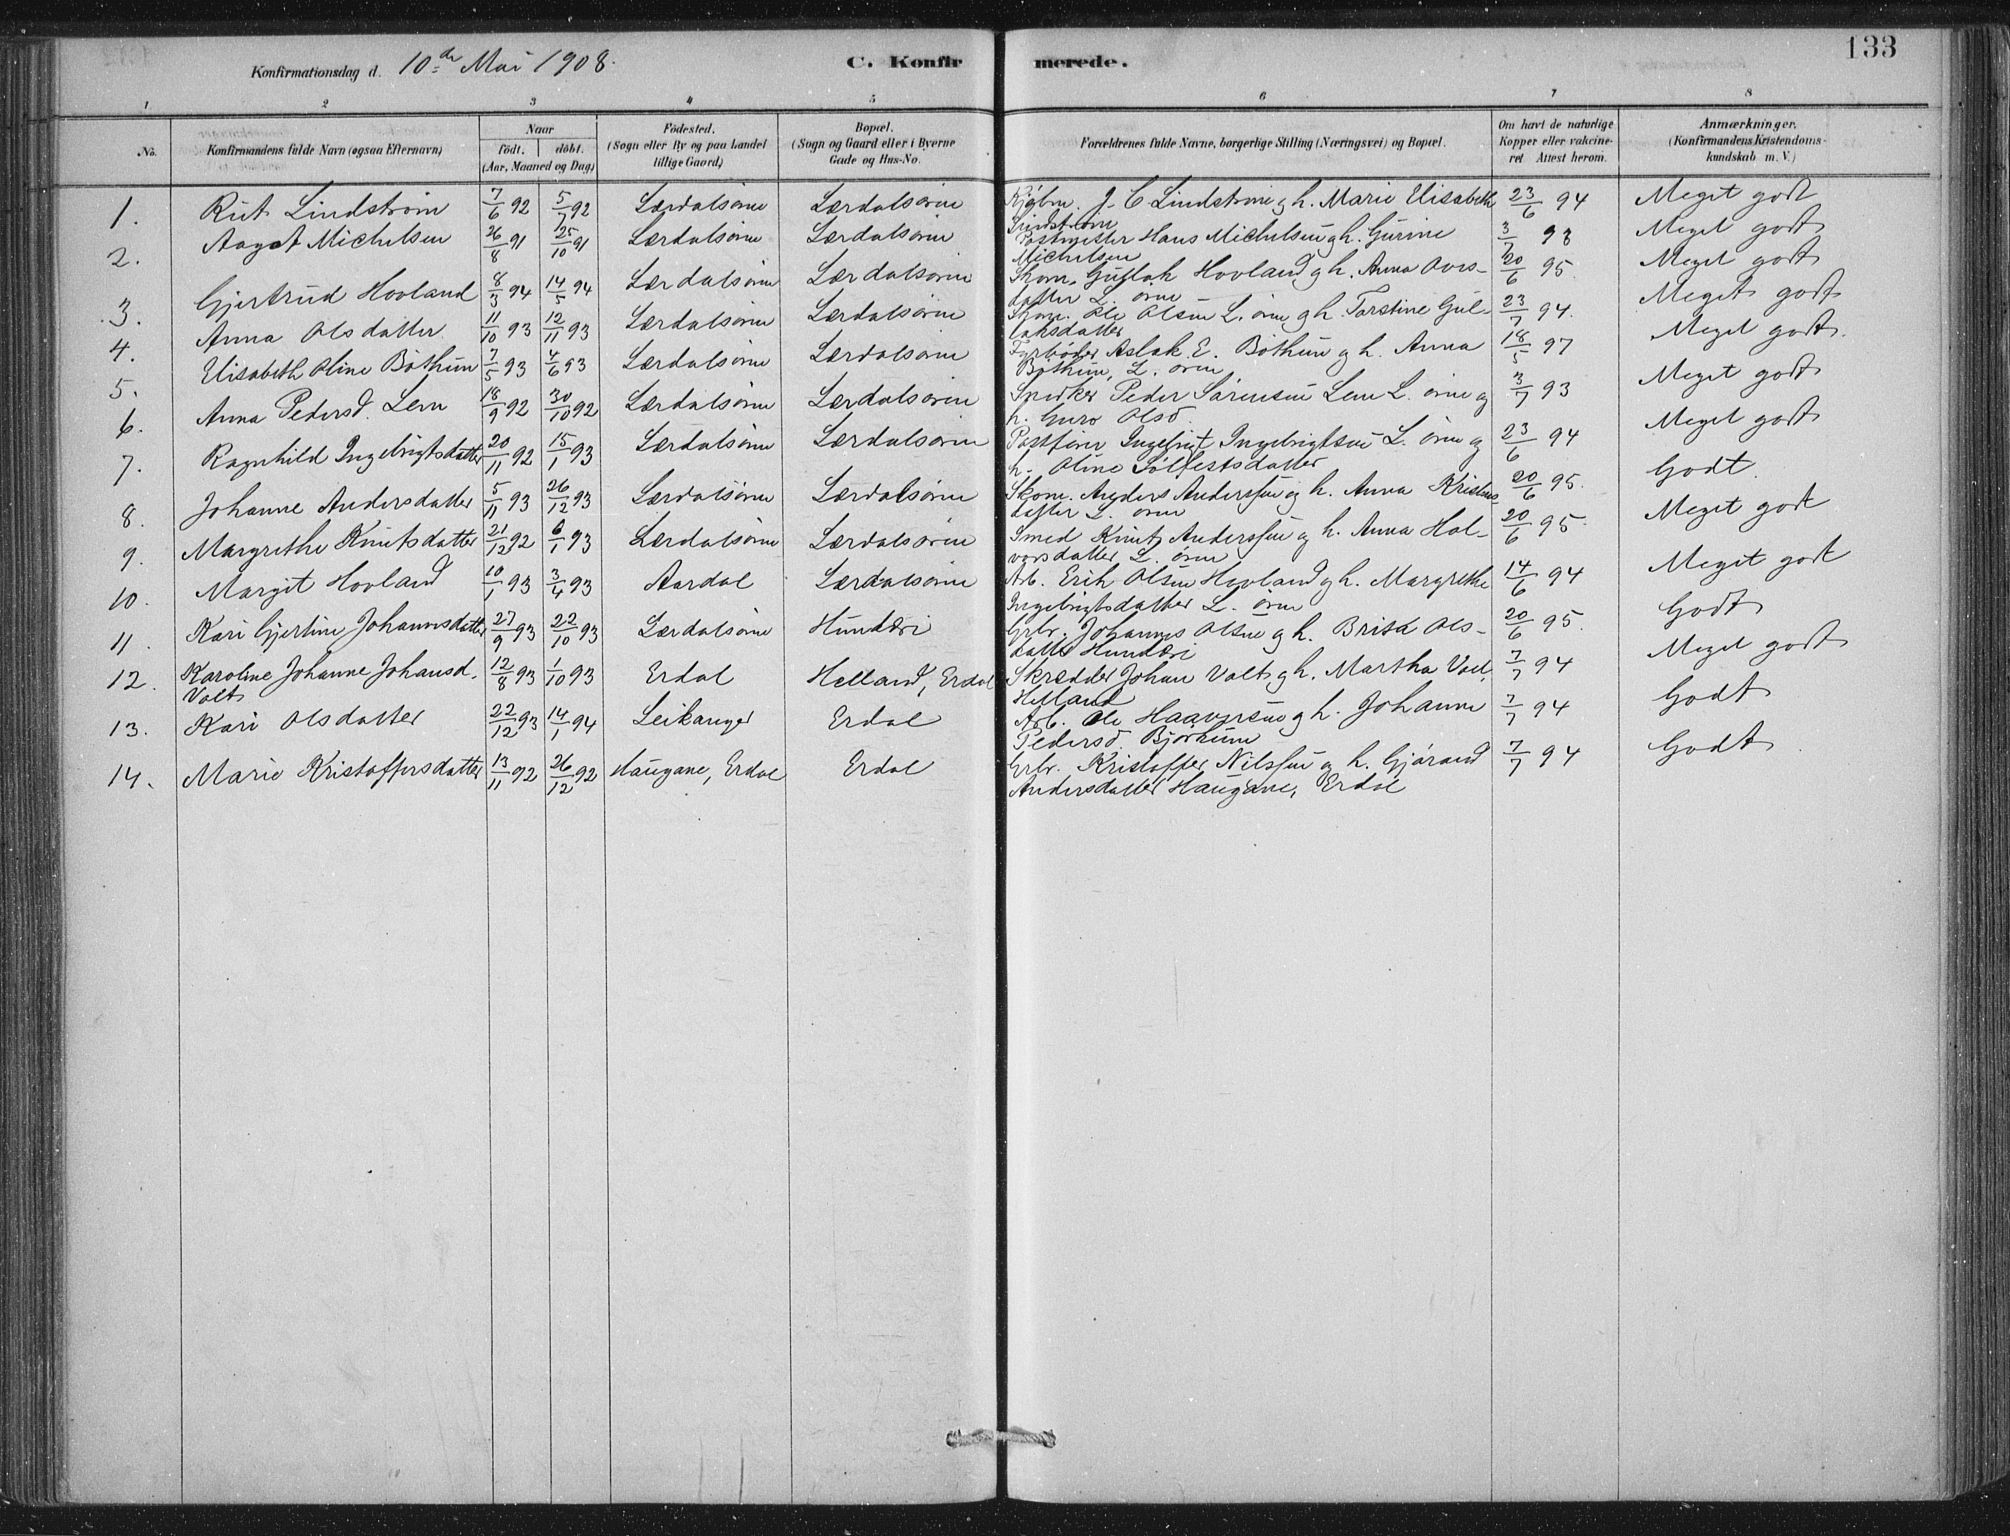 133
Konfirmationsdag d. 10de Mai 1908. C. Konfirmerede.
1 2 3 4 5 6 7 8
No. Konfirmandens fulde Navn (ogsaa Efternavn) Naar födt. döbt. (Aar, Maaned og Dag) Födested. (Sogn eller By og paa Landet tillige Gaard) Bopæl. (Sogn og Gaard eller i Byerne Gade og Hus-No. Forældrenes fulde Navne, borgerlige Stilling (Næringsvei) og Bopæl. Om havt de naturlige Kopper eller vakcineret Attest herom. Anmærkninger. (Konfirmandens Kristendomskundskab m. V.)
1. Rut Lindstrøm 7/6 92 5/7 92 Lærdalsøren Lærdalsøren Kjøbm. J. C Lindstrøm g h. Marie Elisabeth 23/6 94 Meget godt
Lindstrøm
2. Aagot Michelsen 26/8 91 25/10 91 Lærdalsøren Lærdalsøren Postmester Hans Michelsen g h. Gurine 3/7 93 Meget godt
Michelsen
3. Gjertrud Hovland 8/3 94 14/5 94 Lærdalsøren Lærdalsøren Skom. Guttak Hovland g h. Anna 20/6 95. Meget godt
datter L. øren
4. Anna Olsdatter 11/10 93 12/11 93 Lærdalsøren Lærdalsøren Skom. Ole Olsen L. øren g h. Torstine Gul- 23/7 94. Meget godt
laksdatter
5. Elisabeth Oline Bøthun 7/5 93 4/6 93 Lærdalsøren Lærdalsøren Fyrbøder Aslak E. Bøthun g h. Anna 18/5 97 Meget godt.
Bøthun, L. øren
6. Anna Pedersd. Lem 18/9 92 30/10 92 Lærdalsøren Lærdalsøren Snedker Peder Sørensen Lem L. øren og 3/7 93 Meget godt
h. Guro Olsd.
7. Ragnhild Ingebrigtsdatter 20/11 92 15/1 93 Lærdalsøren Lærdalsøren Postfører Ingebrigt Ingebrigtsen L. øren og 23/6 94 Meget godt
h. Oline Sølfestsdatter
8. Johanne Andersdatter 5/11 93 26/12 93 Lærdalsøren Lærdalsøren Skom. Anders Anderssen og h. Anna Kristens 20/6 95. Godt.
datter L. øren
9. Margrethe Knutsdatter 21/12 92 6/1 93 Lærdalsøren Lærdalsøren Smed Knut Anderssen og h. Anna Hal- 20/6 95. Meget godt
vorsdatter L. øren
10. Margit Hovland 10/1 93 3/4 93 Aardal Lærdalsøren Arb. Erik Olsen Hovland g h. Margrethe 14/6 94 Meget godt
Ingebrigtsdatter L. øren
11. Kari Gjertine Johannesdatter 27/9 93 22/10 93 Lærdalsøren Hunderi Grbr. Johannes Olsen g h. Brita Ols- 20/6 95. Godt
datter Hunderi
12. Karoline Johanne Johansd. 12/8 93 1/10 93 Erdal Helland, Erdal Skredder Johan Volt g h. Martha Volt 7/7 94 Meget godt
Volt Helland
13. Kari Olsdatter 22/12 93 14/1 94 Leikanger Erdal Arb. Ole Haaversen g h. Johanne 7/7 94 Godt
Pedersd. Bjørkum
14. Marie Kristoffersdatter 13/11 92 26/12 92 Haugane, Erdal Erdal Grbr. Kristoffer Nilssen og h. Gjørand 7/7 94 Godt
Andersdatter Haugane, Erdal